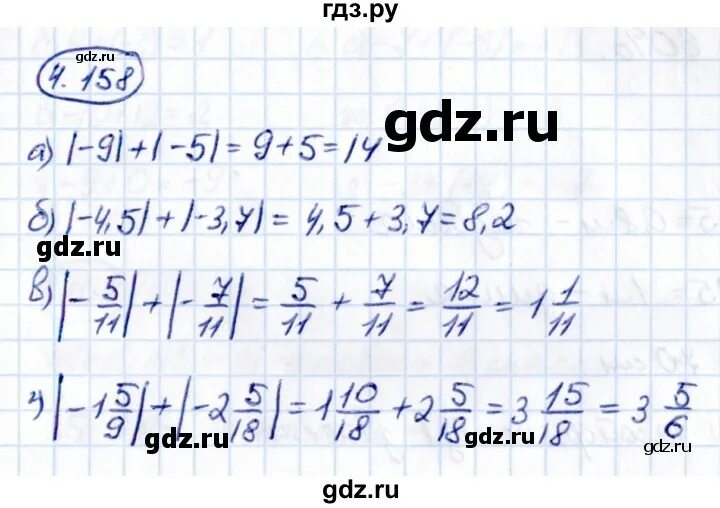 гдз.ру
gdz.ru
4.158
gdz.ru
а) |-9|+|-5|=9+5=14
б) |-4,5|+|-3,7|=4,5+3,7=8,2
gdz.ru
в) |-5/11|+|-7/11|=5/11+7/11=12/11=1 1/11
г) |-1 5/9|+|-2 5/18|=1 10/18+2 5/18=3 15/18=3 5/6
gdz.ru
gdz.ru
gdz.ru